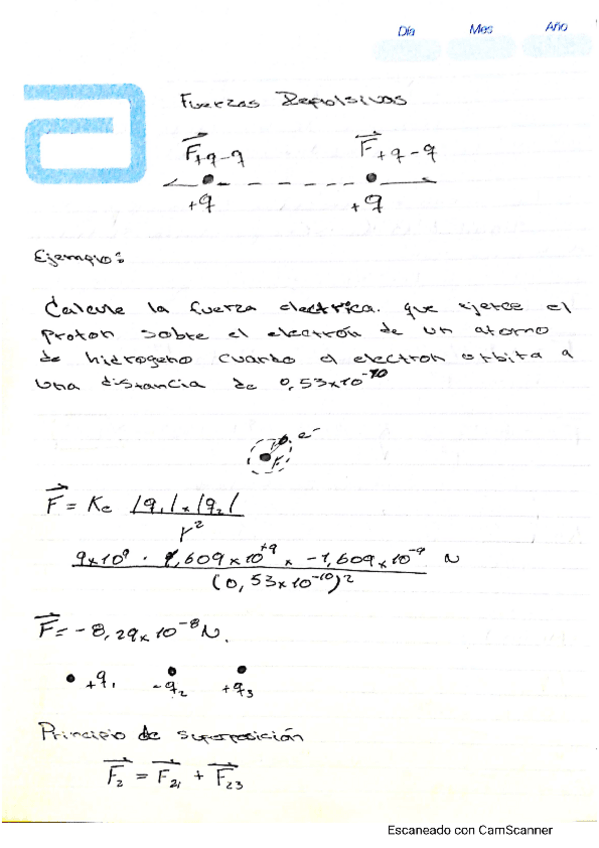 Día Mes Año
Fuerzas Repulsivas
F+q-q F+q-q
+q +q
Ejemplo:
Calcule la fuerza electrica. que ejerce el
proton sobre el electrón de un atomo
de hidrogeno cuando el electron orbita a
una distancia de 0,53x10^-10
e-
F = Ke |q1|x|q2|
r²
9x10⁹ · 1,609x10^+9 x -1,609x10^-9 N
(0,53x10^-10)²
F=-8,29x10^-8 N.
+q1 -q2 +q3
Principio de superposición
F2 = F21 + F23
Escaneado con CamScanner